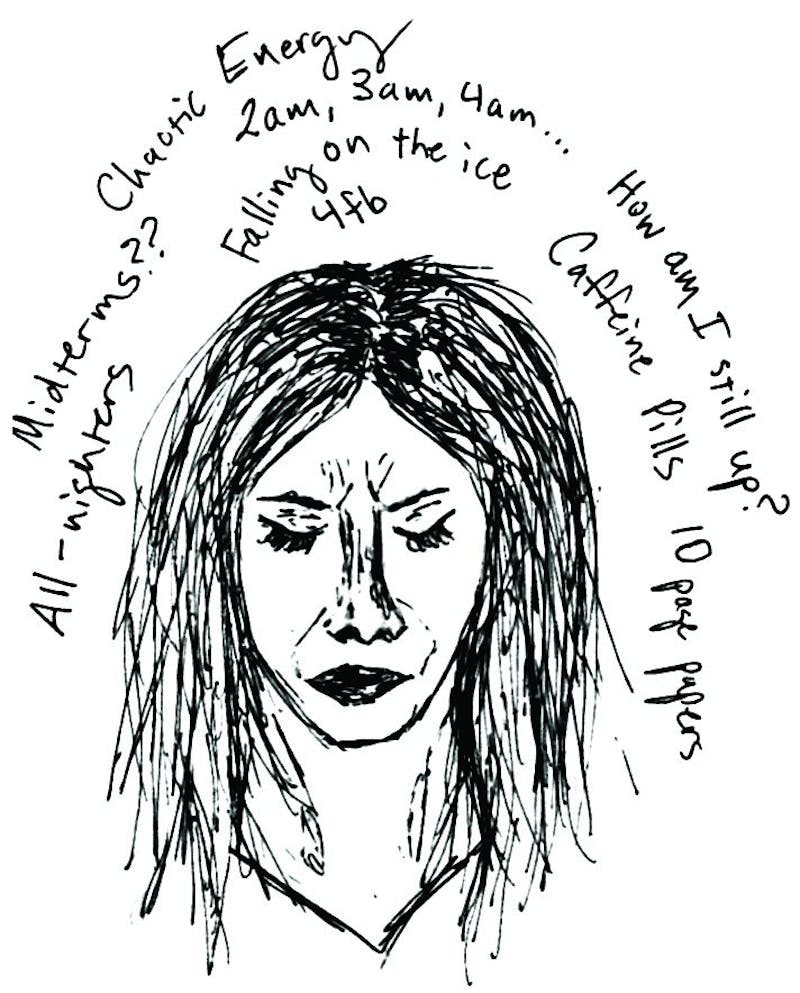 Chaotic Energy
2am, 3am, 4am...
Falling on the ice
4fb
Midterms??
All-nighters
How am I still up?
Caffeine Pills
10 page papers